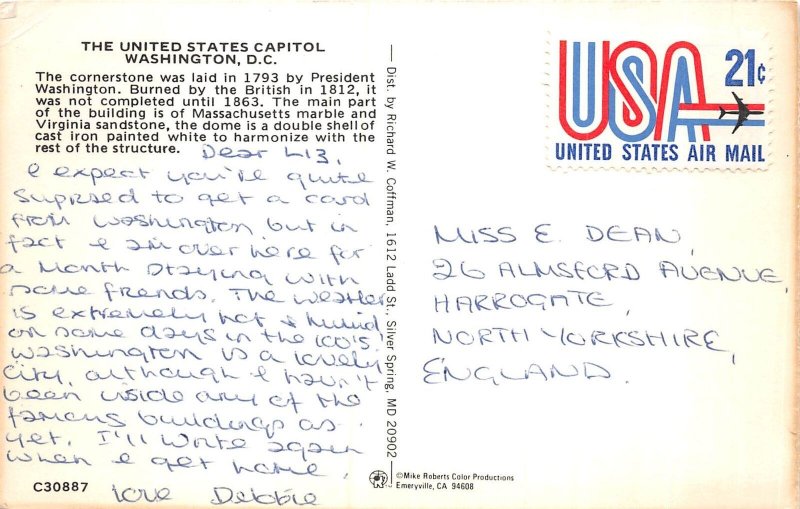 THE UNITED STATES CAPITOL
WASHINGTON, D.C.
The cornerstone was laid in 1793 by President
Washington. Burned by the British in 1812, it
was not completed until 1863. The main part
of the building is of Massachusetts marble and
Virginia sandstone, the dome is a double shell of
cast iron painted white to harmonize with the
rest of the structure.
Dear Liz,
I expect you're quite
suprised to get a card
from Washington, but in
fact I am over here for
a month staying with
some friends. The weather
is extremely hot & humid
on some days in the 100's.
Washington is a lovely
city, although I haven't
been inside any of the
famous buildings as
yet. I'll write again
when I get home,
love Debbie
C30887
Dist. by Richard W. Coffman, 1612 Ladd St., Silver Spring, MD 20902
©Mike Roberts Color Productions
Emeryville, CA 94608
USA 21¢
UNITED STATES AIR MAIL
MISS E. DEAN,
26 ALMSFORD AVENUE,
HARROGATE,
NORTH YORKSHIRE,
ENGLAND.